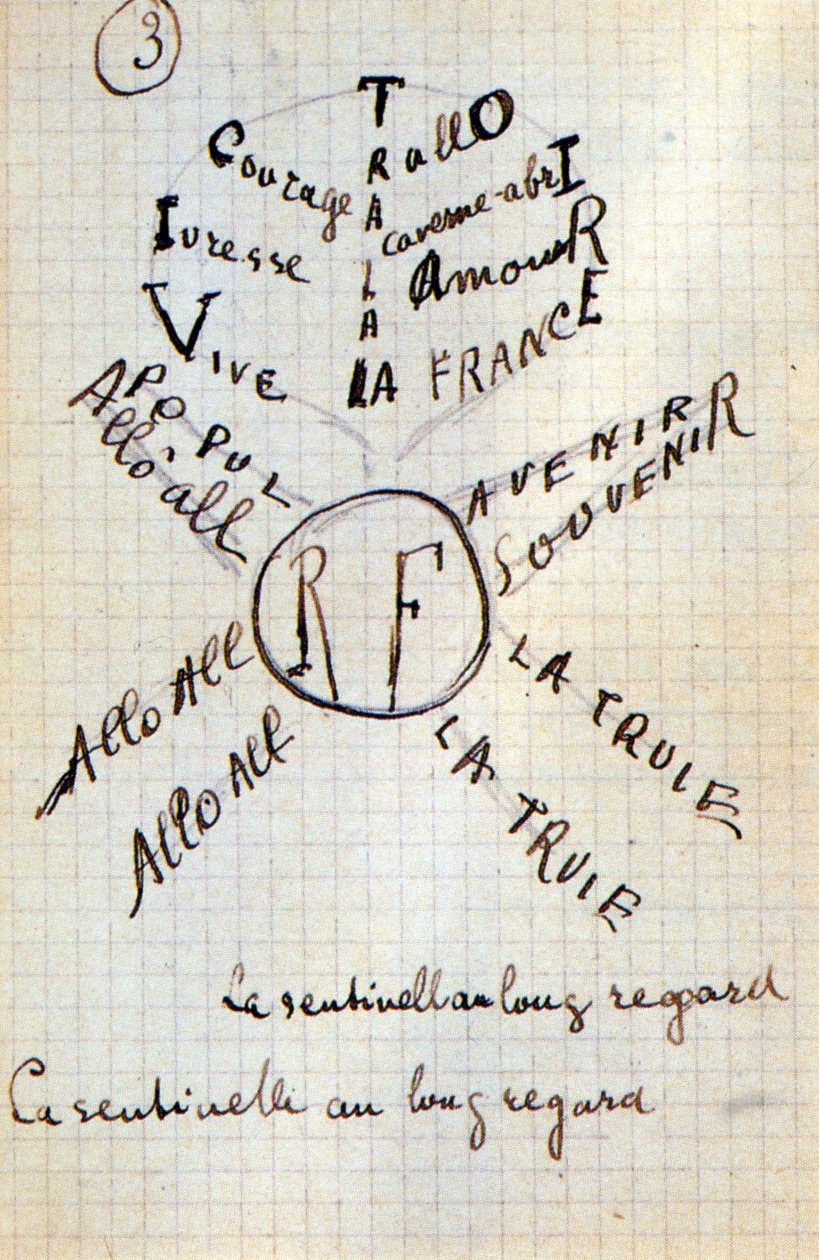 3
TRALALA
RallO
Courage
caverne-abrI
Ivresse
AmouR
VIVE
LA FRANCE
APOPUL
Allô all
AVENIR
SOUVENIR
R F
Allo All
LA TRUIE
Allo All
LA TRUIE
La sentinell au long regard
La sentinelle au long regard